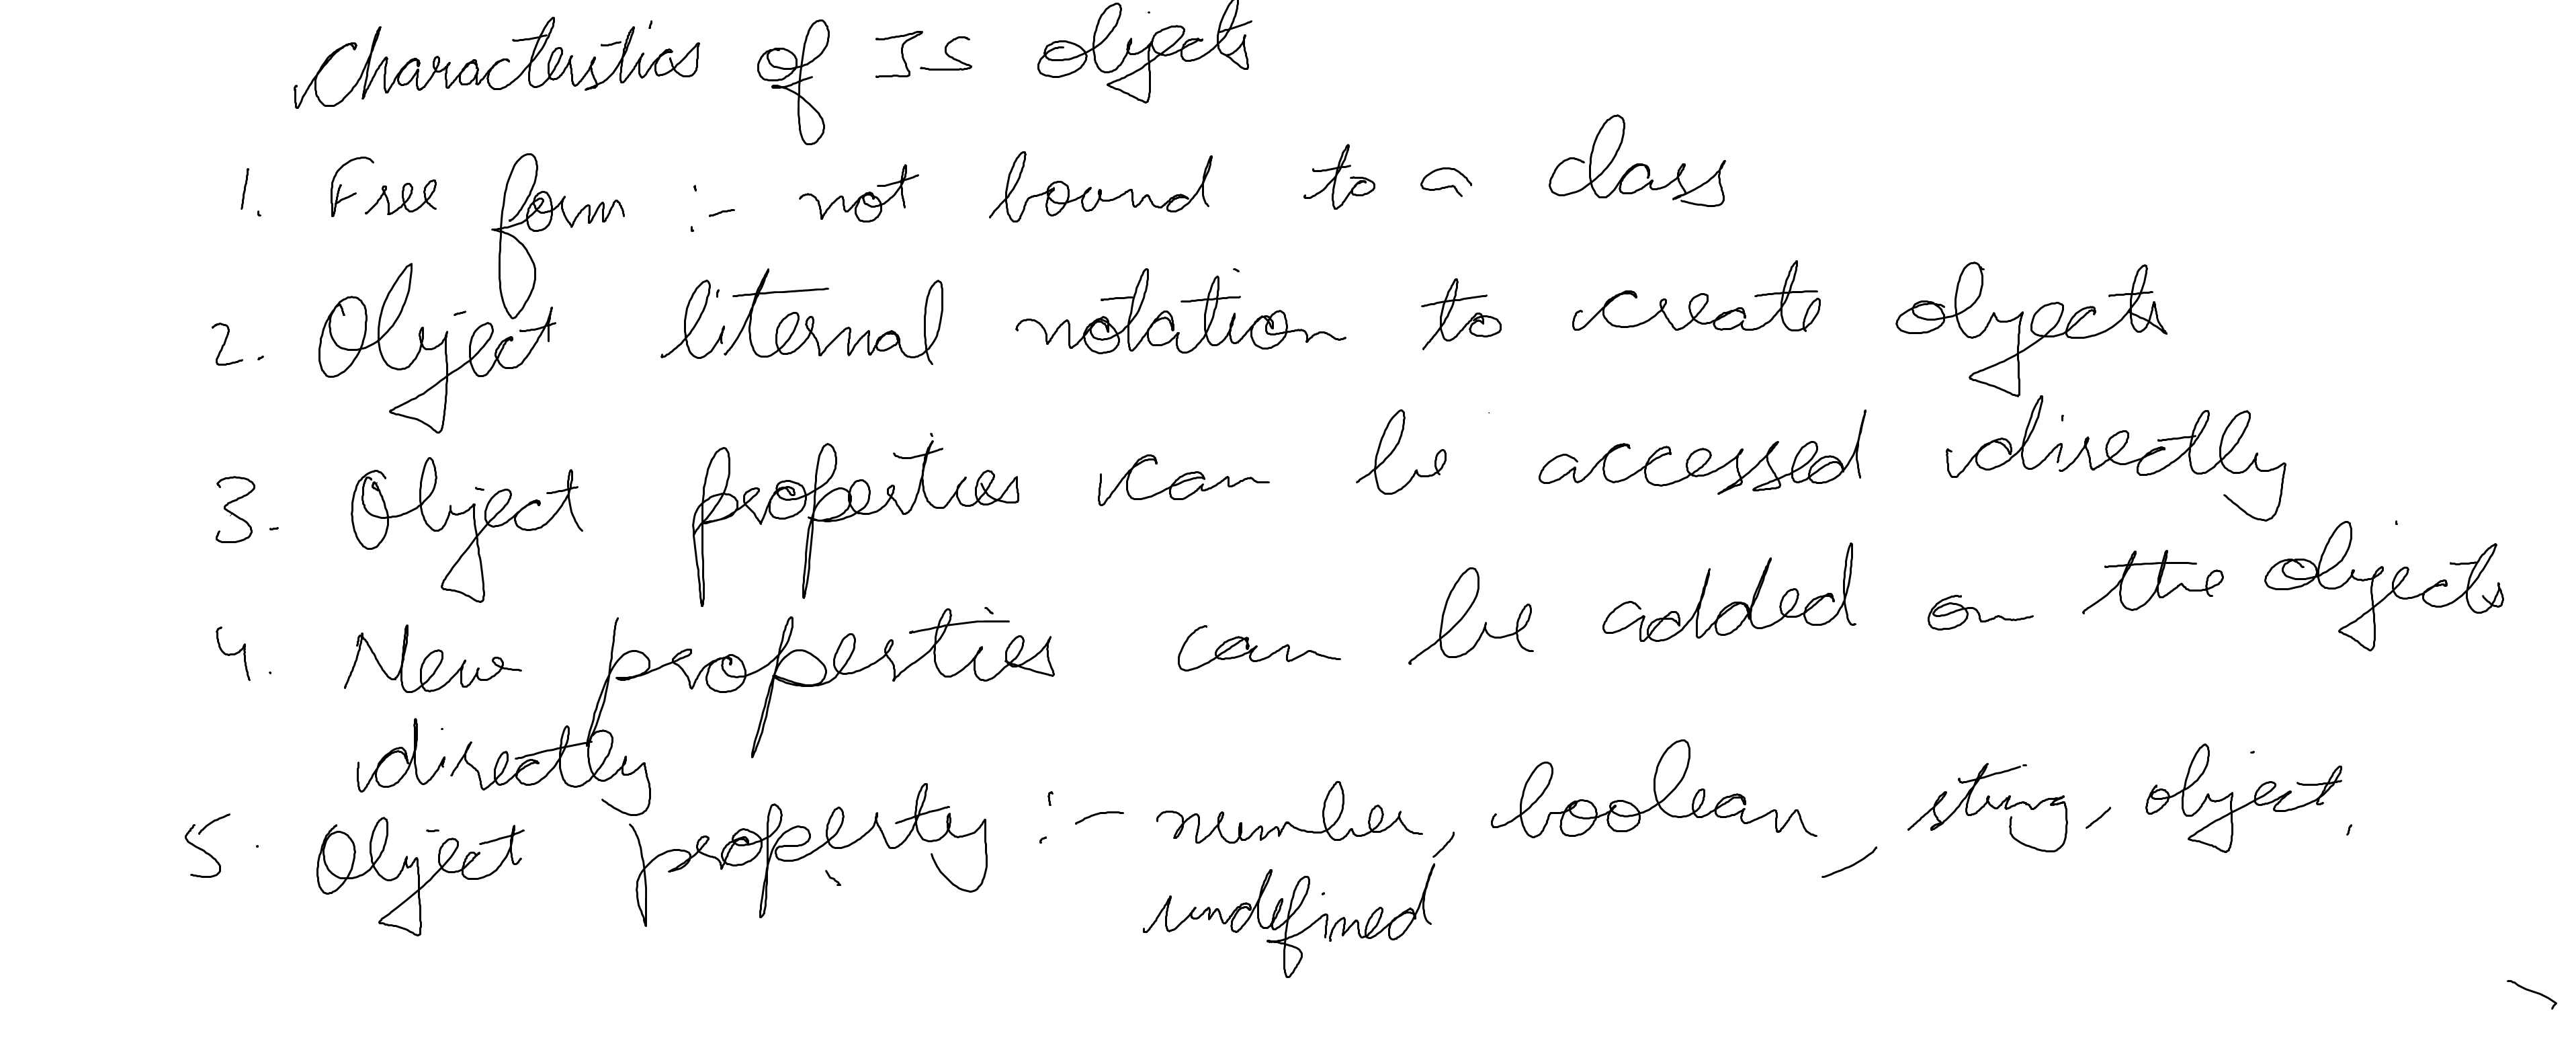 Characterstics of JS objects
1. Free form :- not bound to a class
2. Object liternal notation to create objects
3. Object properties can be accessed directly
4. New properties can be added on the objects
directly
5. Object property :- number, boolean, string, object,
undefined